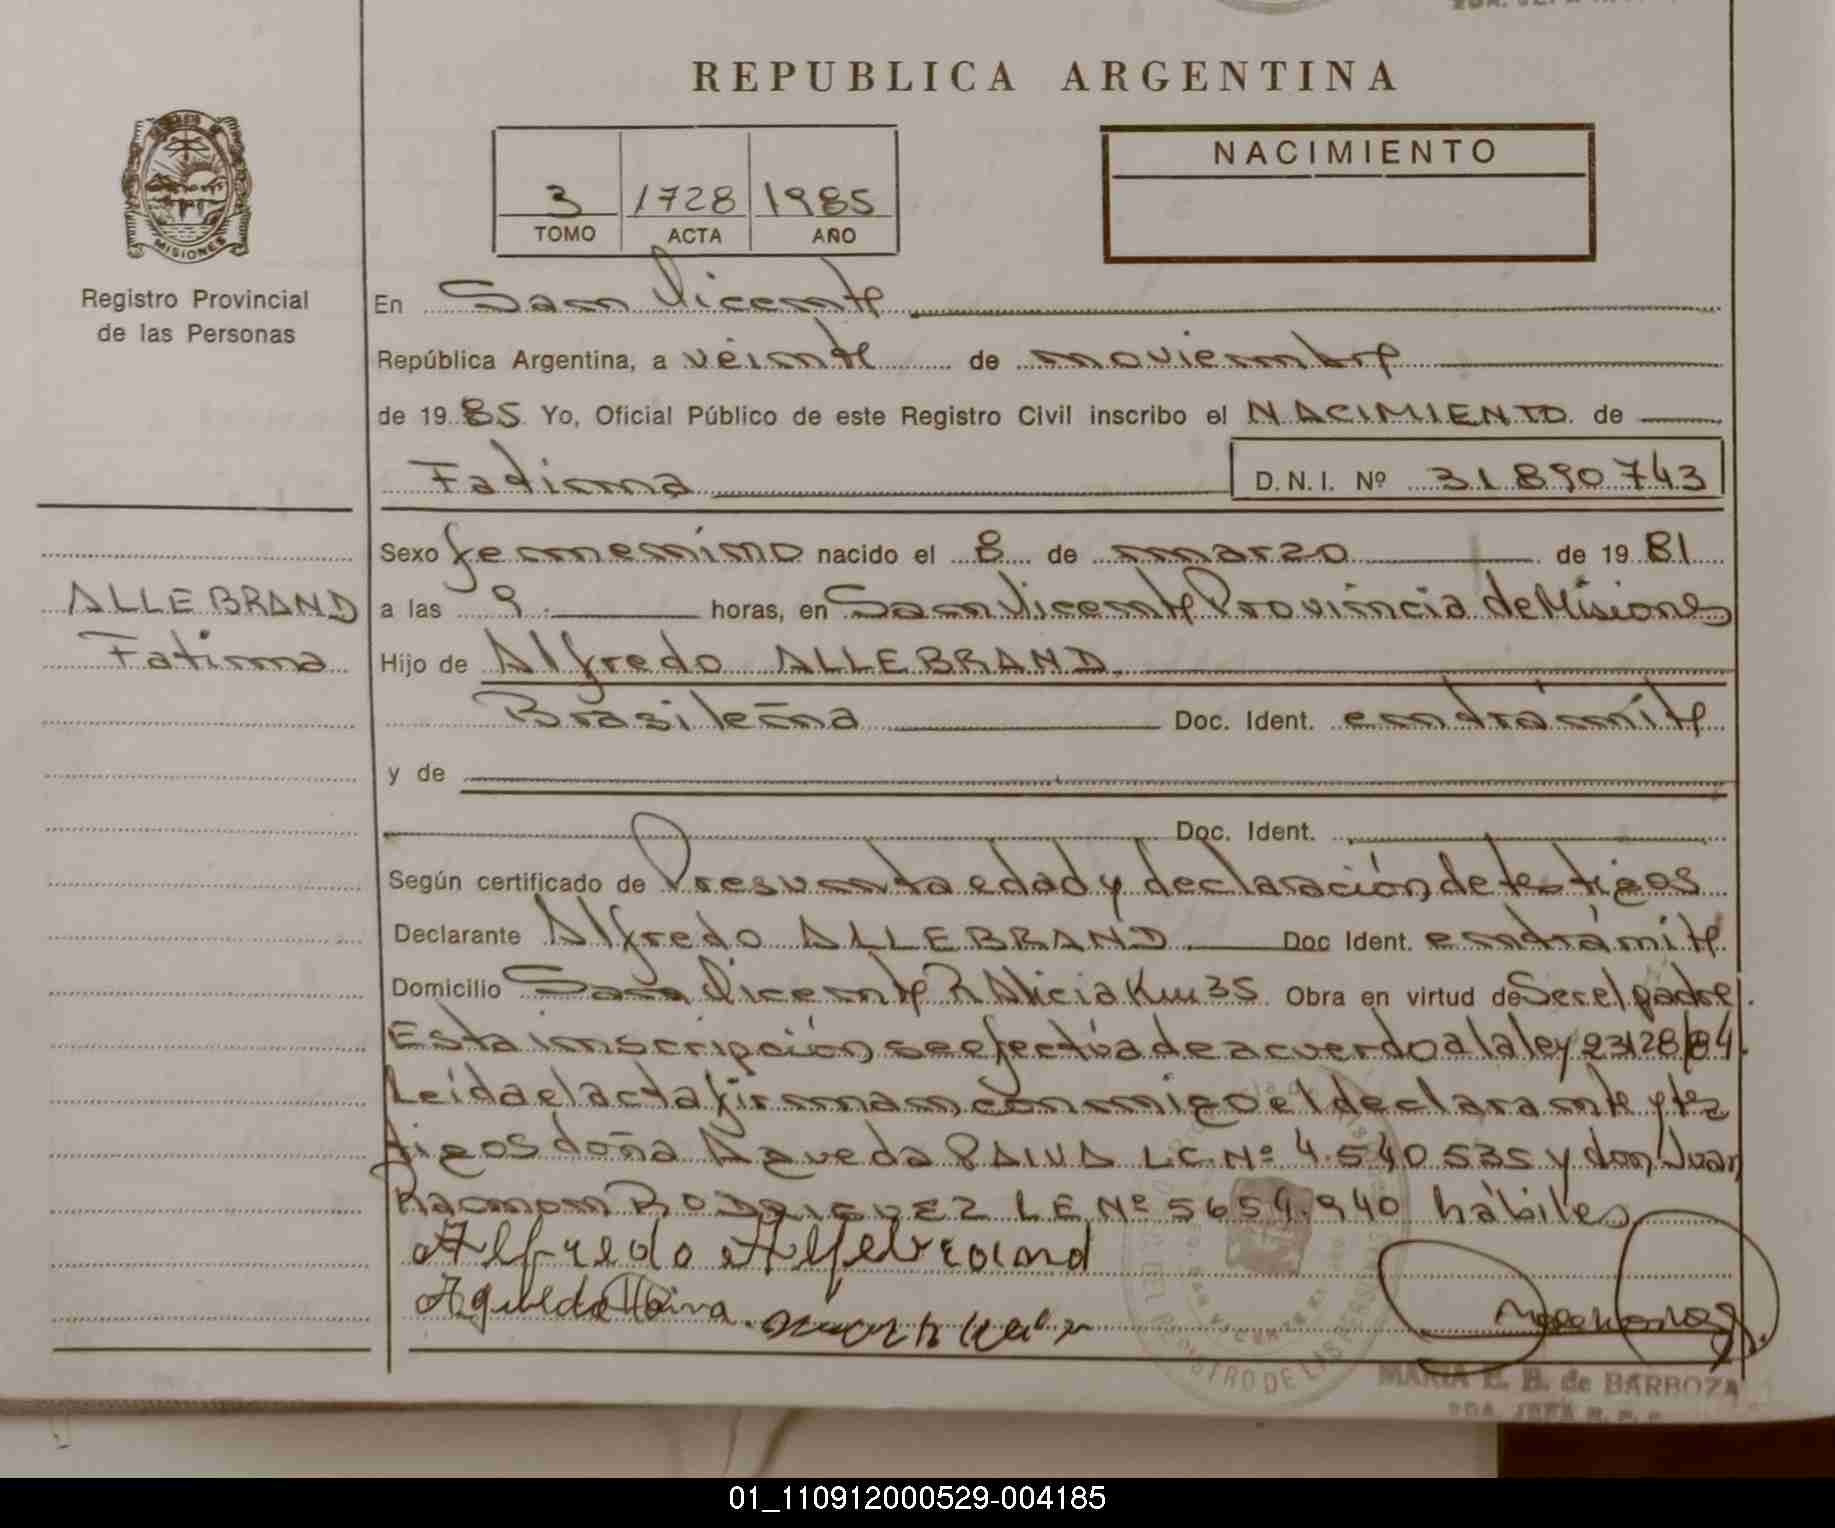 REPUBLICA ARGENTINA
3 1728 1985
TOMO ACTA AÑO
NACIMIENTO
MISIONES
Registro Provincial
de las Personas
En San Vicente
República Argentina, a veinte de noviembre
de 1985 Yo, Oficial Público de este Registro Civil inscribo el NACIMIENTO de
Fatima
D.N.I. Nº 31.890.743
ALLEBRAND
Fatima
Sexo femenino nacido el 8 de marzo de 1981
a las 9 horas, en San Vicente Provincia de Misiones
Hijo de Alfredo ALLEBRAND
Brasileña Doc. Ident. en trámite
y de
Doc. Ident.
Según certificado de Presunta edad y declaración de testigos
Declarante Alfredo ALLEBRAND Doc Ident. en trámite
Domicilio San Vicente R Alicia Km 35 Obra en virtud de Ser el padre.
Esta inscripción se efectúa de acuerdo a la ley 23128/84.
Leída el acta firman conmigo el declarante y tes
tigos doña Agueda PAIVA L.C. Nº 4.540.535 y don Juan
Ramon RODRIGUEZ LE Nº 5659.940 hábiles
Alfredo
Agueda Paiva
MARIA E. B. de BARBOZA
2DA. JEFA R. P. P.
01_110912000529-004185